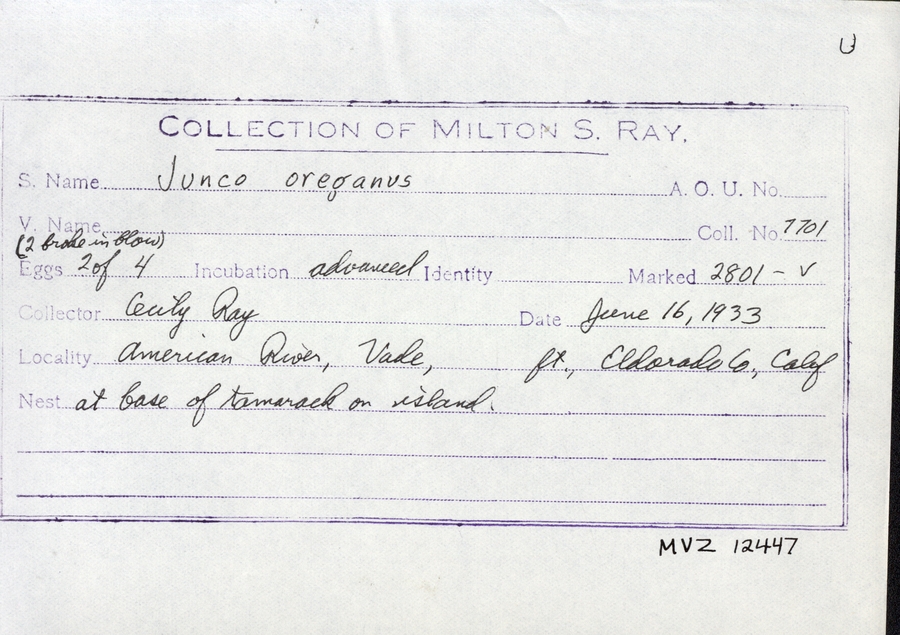 U
COLLECTION OF MILTON S. RAY.
S. Name Junco oreganus A. O. U. No.
V. Name Coll. No. 7701
(2 broke in blow)
Eggs 2 of 4 Incubation advanced Identity Marked 2801 - v
Collector Cecily Ray Date June 16, 1933
Locality American River, Vade, ft., Eldorado Co., Calif
Nest at base of tamarack on island.
MVZ 12447